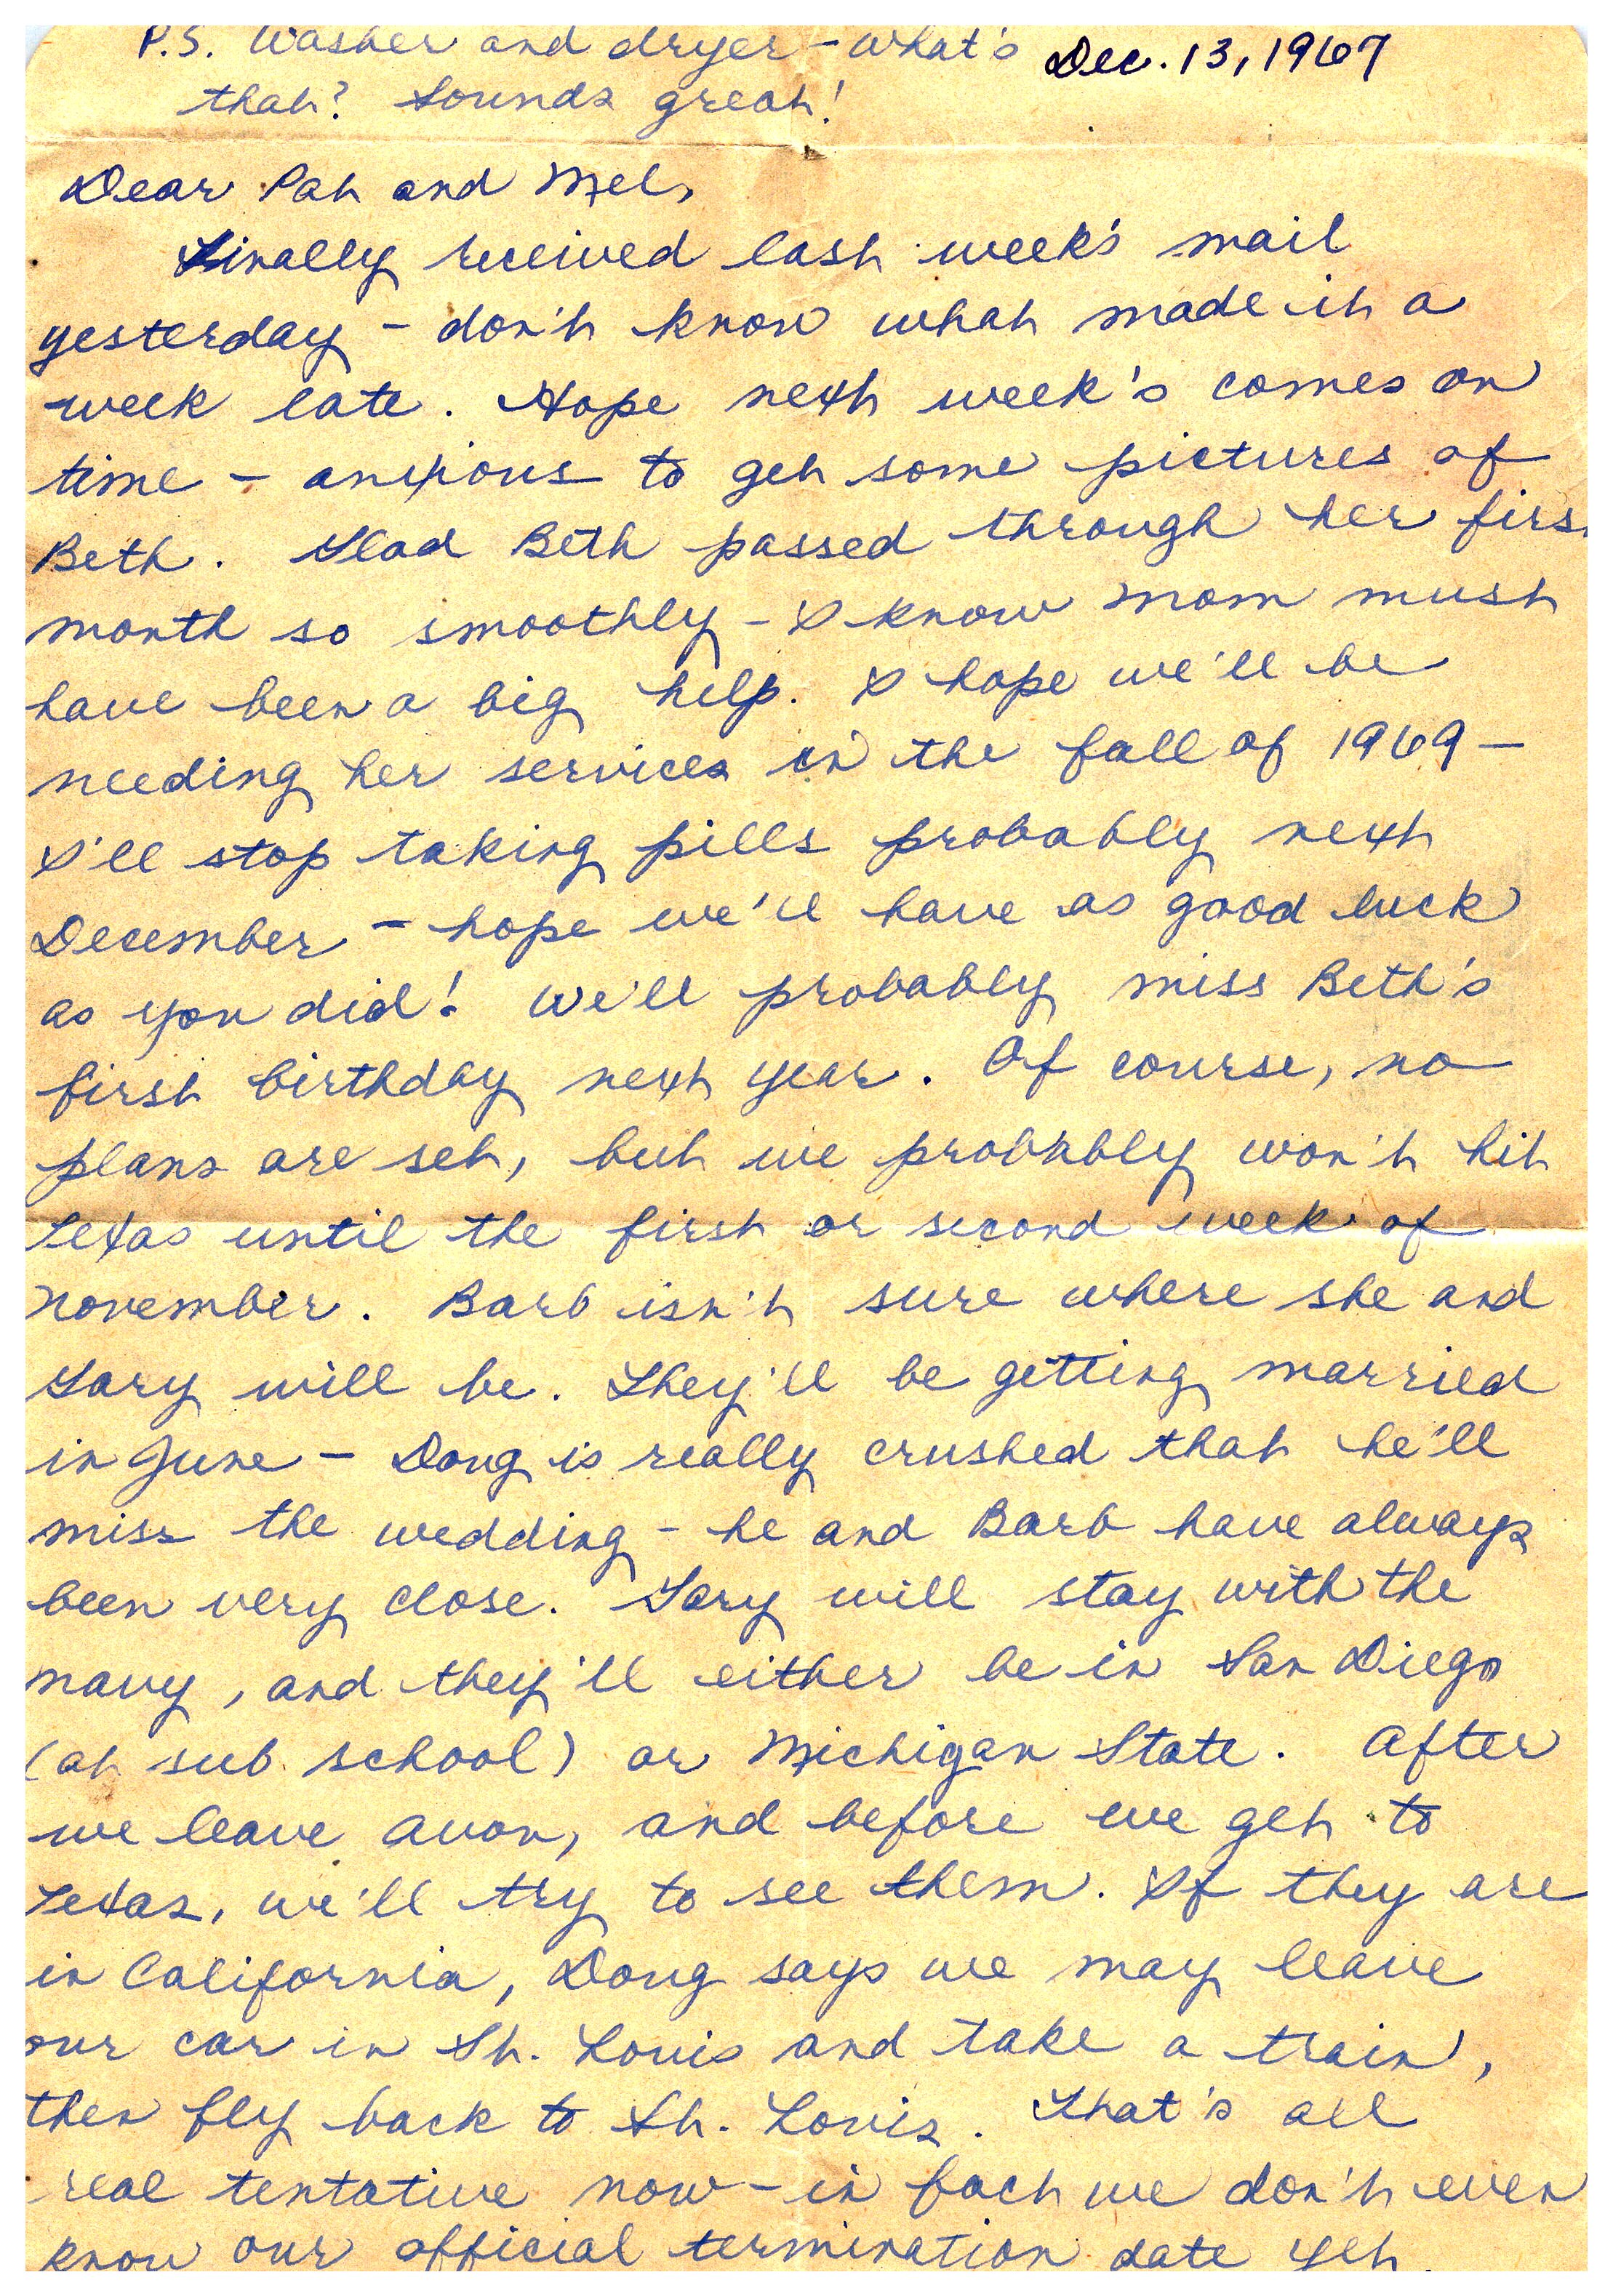 P.S. Washer and dryer - what's
that? Sounds great!
Dec. 13, 1967
Dear Pat and Mel,
Finally received last week's mail
yesterday - don't know what made it a
week late. Hope next week's comes on
time - anxious to get some pictures of
Beth. Glad Beth passed through her first
month so smoothly - I know mom must
have been a big help. I hope we'll be
needing her services in the fall of 1969 -
I'll stop taking pills probably next
December - hope we'll have as good luck
as you did! We'll probably miss Beth's
first birthday next year. Of course, no
plans are set, but we probably won't hit
Texas until the first or second week of
November. Barb isn't sure where she and
Gary will be. They'll be getting married
in June - Doug is really crushed that he'll
miss the wedding - he and Barb have always
been very close. Gary will stay with the
navy, and they'll either be in San Diego
(at sub school) or Michigan State. After
we leave Avon, and before we get to
Texas, we'll try to see them. If they are
in California, Doug says we may leave
our car in St. Louis and take a train,
then fly back to St. Louis. That's all
real tentative now - in fact we don't even
know our official termination date yet.